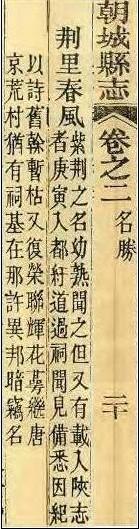 朝城縣志
卷之二
名勝
二十
荆里春風
紫荆之名幼熟聞之但又有載入陝志
者庚寅入都紆道過祠聞見備悉因紀
以詩舊幹暫枯又復榮聯輝花萼繼唐
京荒村猶有祠基在那許異邦暗竊名